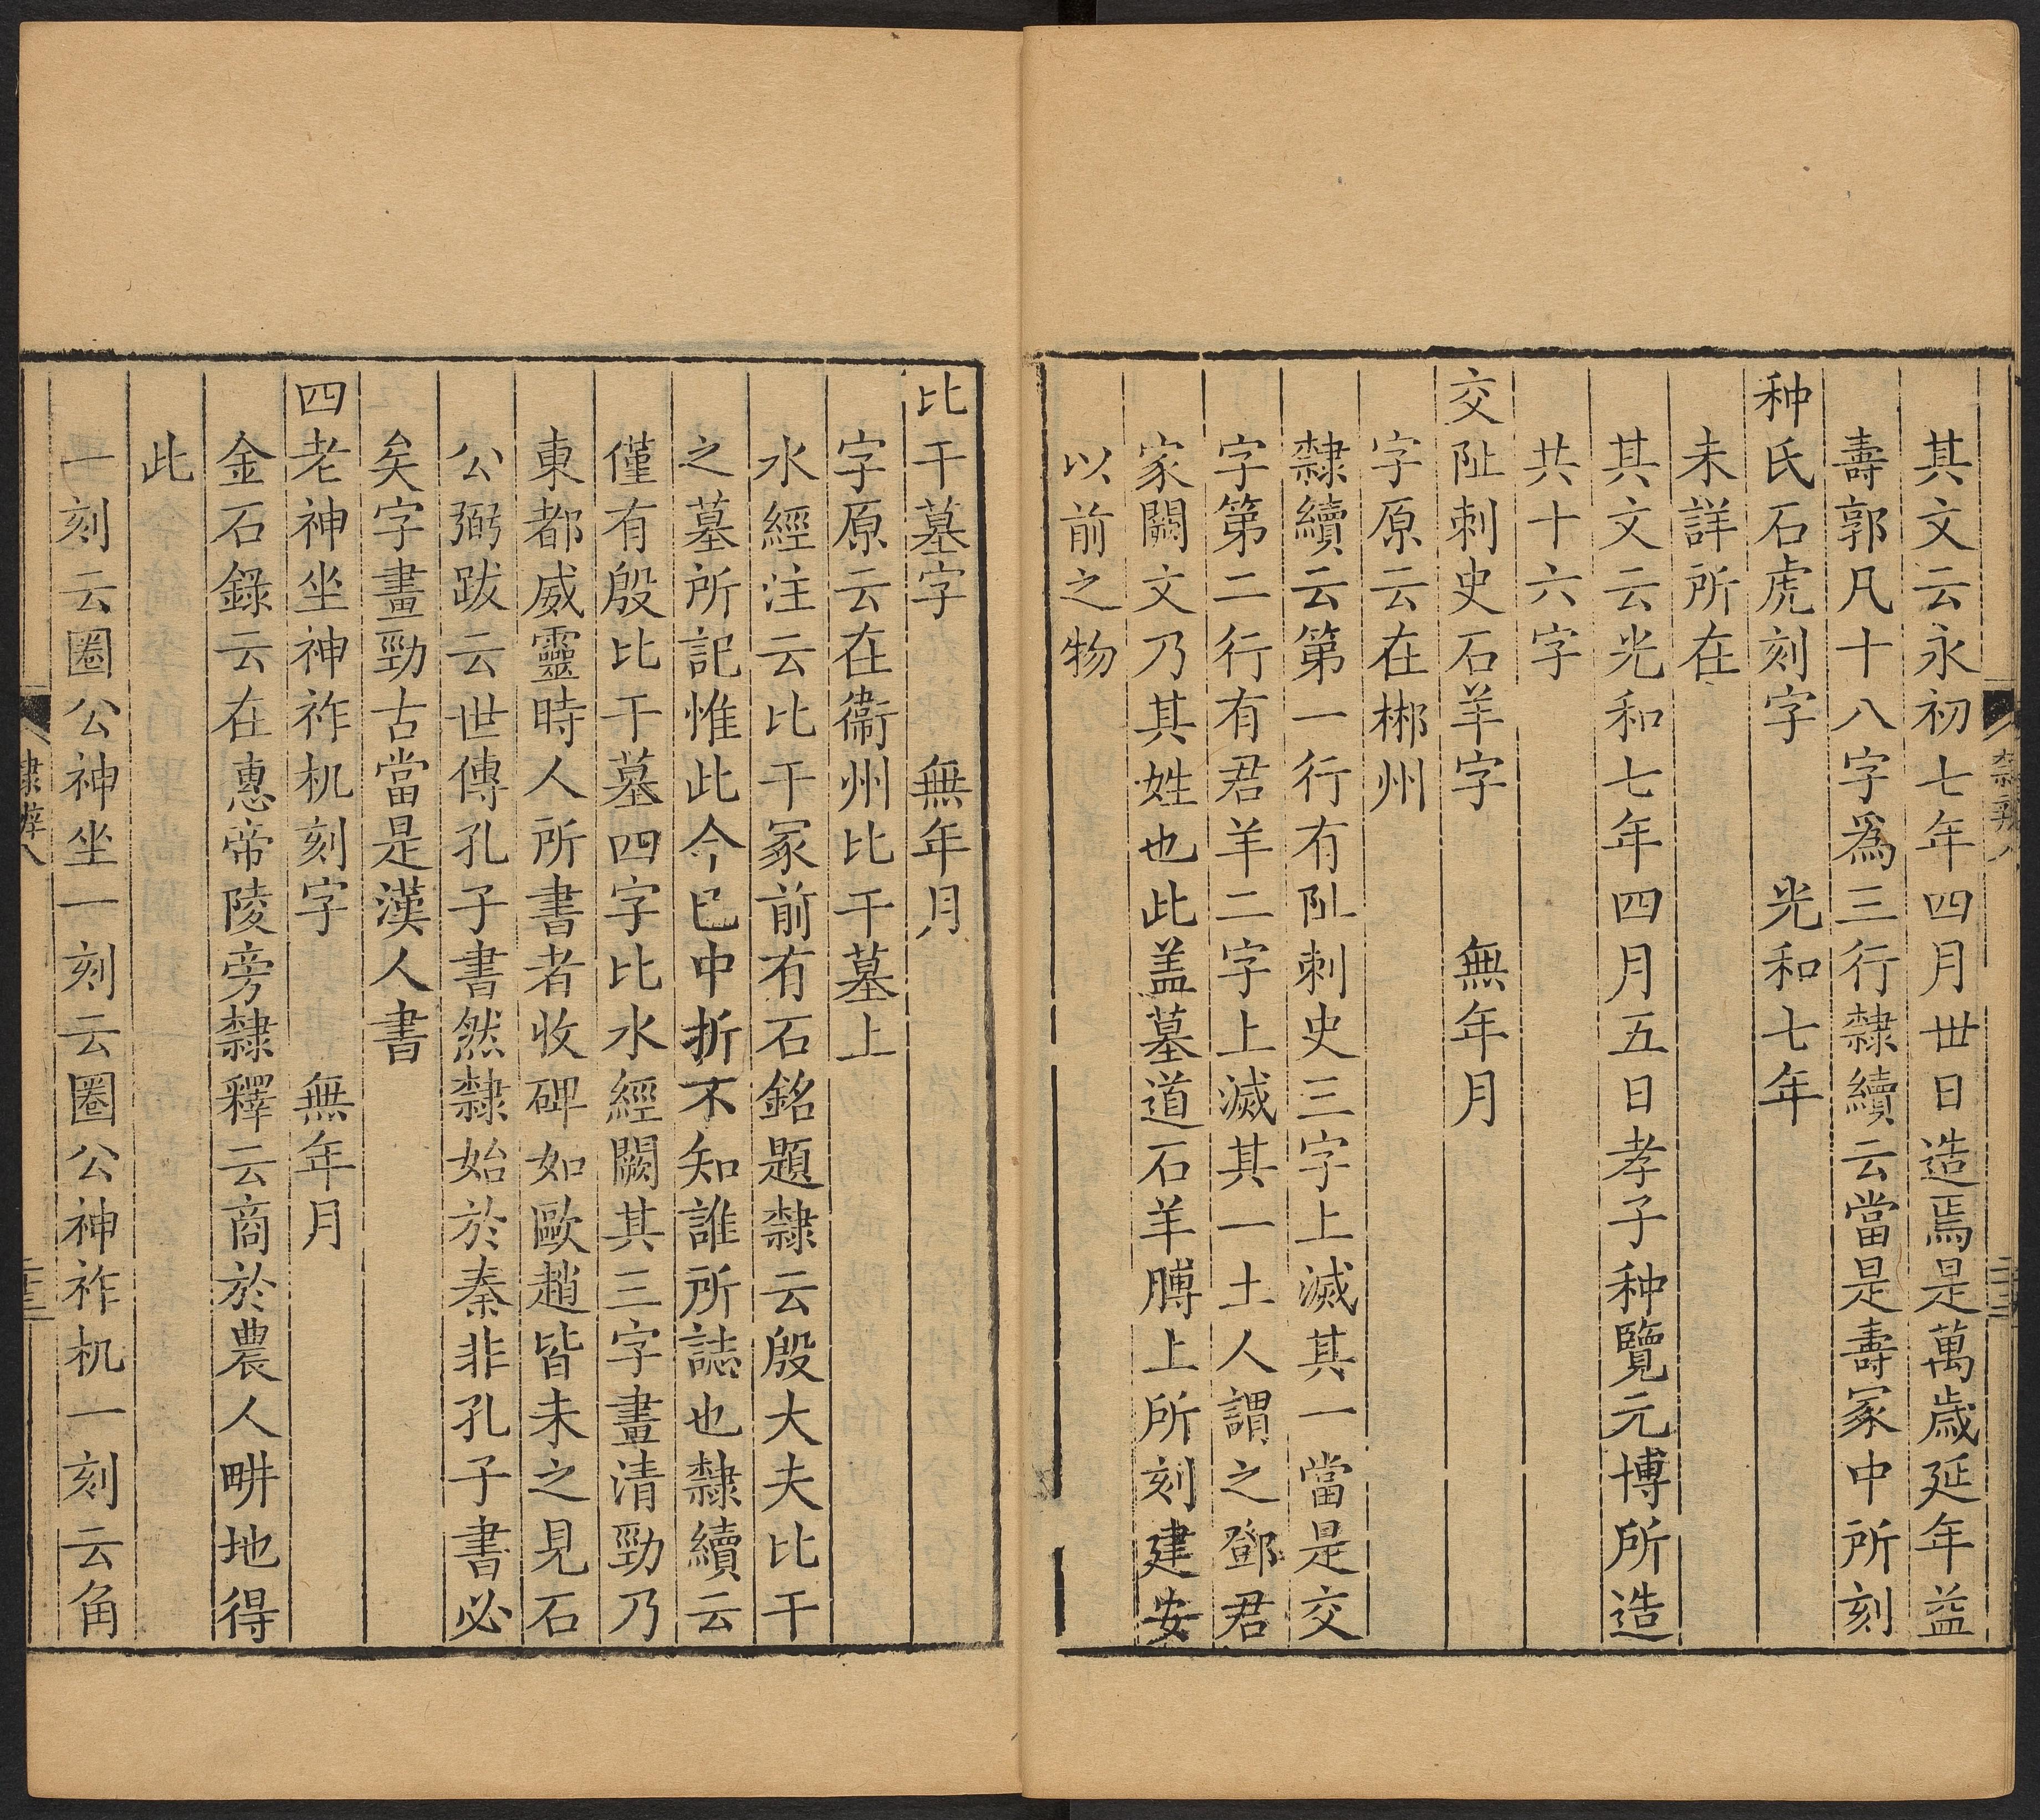 其文云永初七年四月丗日造焉是萬歲延年益
壽郭凡十八字爲三行隸續云當是壽冢中所刻
种氏石虎刻字 光和七年
未詳所在
其文云光和七年四月五日孝子种覽元博所造
共十六字
交阯刺史石羊字 無年月
字原云在郴州
隸續云第一行有阯刺史三字上滅其一當是交
字第二行有君羊二字上滅其一土人謂之鄧君
家闕文乃其姓也此盖墓道石羊膊上所刻建安
以前之物
比干墓字 無年月
字原云在衞州比干墓上
水經注云比干冢前有石銘題隸云殷大夫比干
之墓所記惟此今已中折不知誰所誌也隸續云
僅有殷比干墓四字比水經闕其三字畫清勁乃
東都威靈時人所書者收碑如歐趙皆未之見石
公弼跋云世傳孔子書然隸始於秦非孔子書必
矣字畫勁古當是漢人書
四老神坐神祚机刻字 無年月
金石錄云在惠帝陵旁隸釋云商於農人畊地得
此
一刻云圈公神坐一刻云圈公神祚机一刻云角
隸辨八